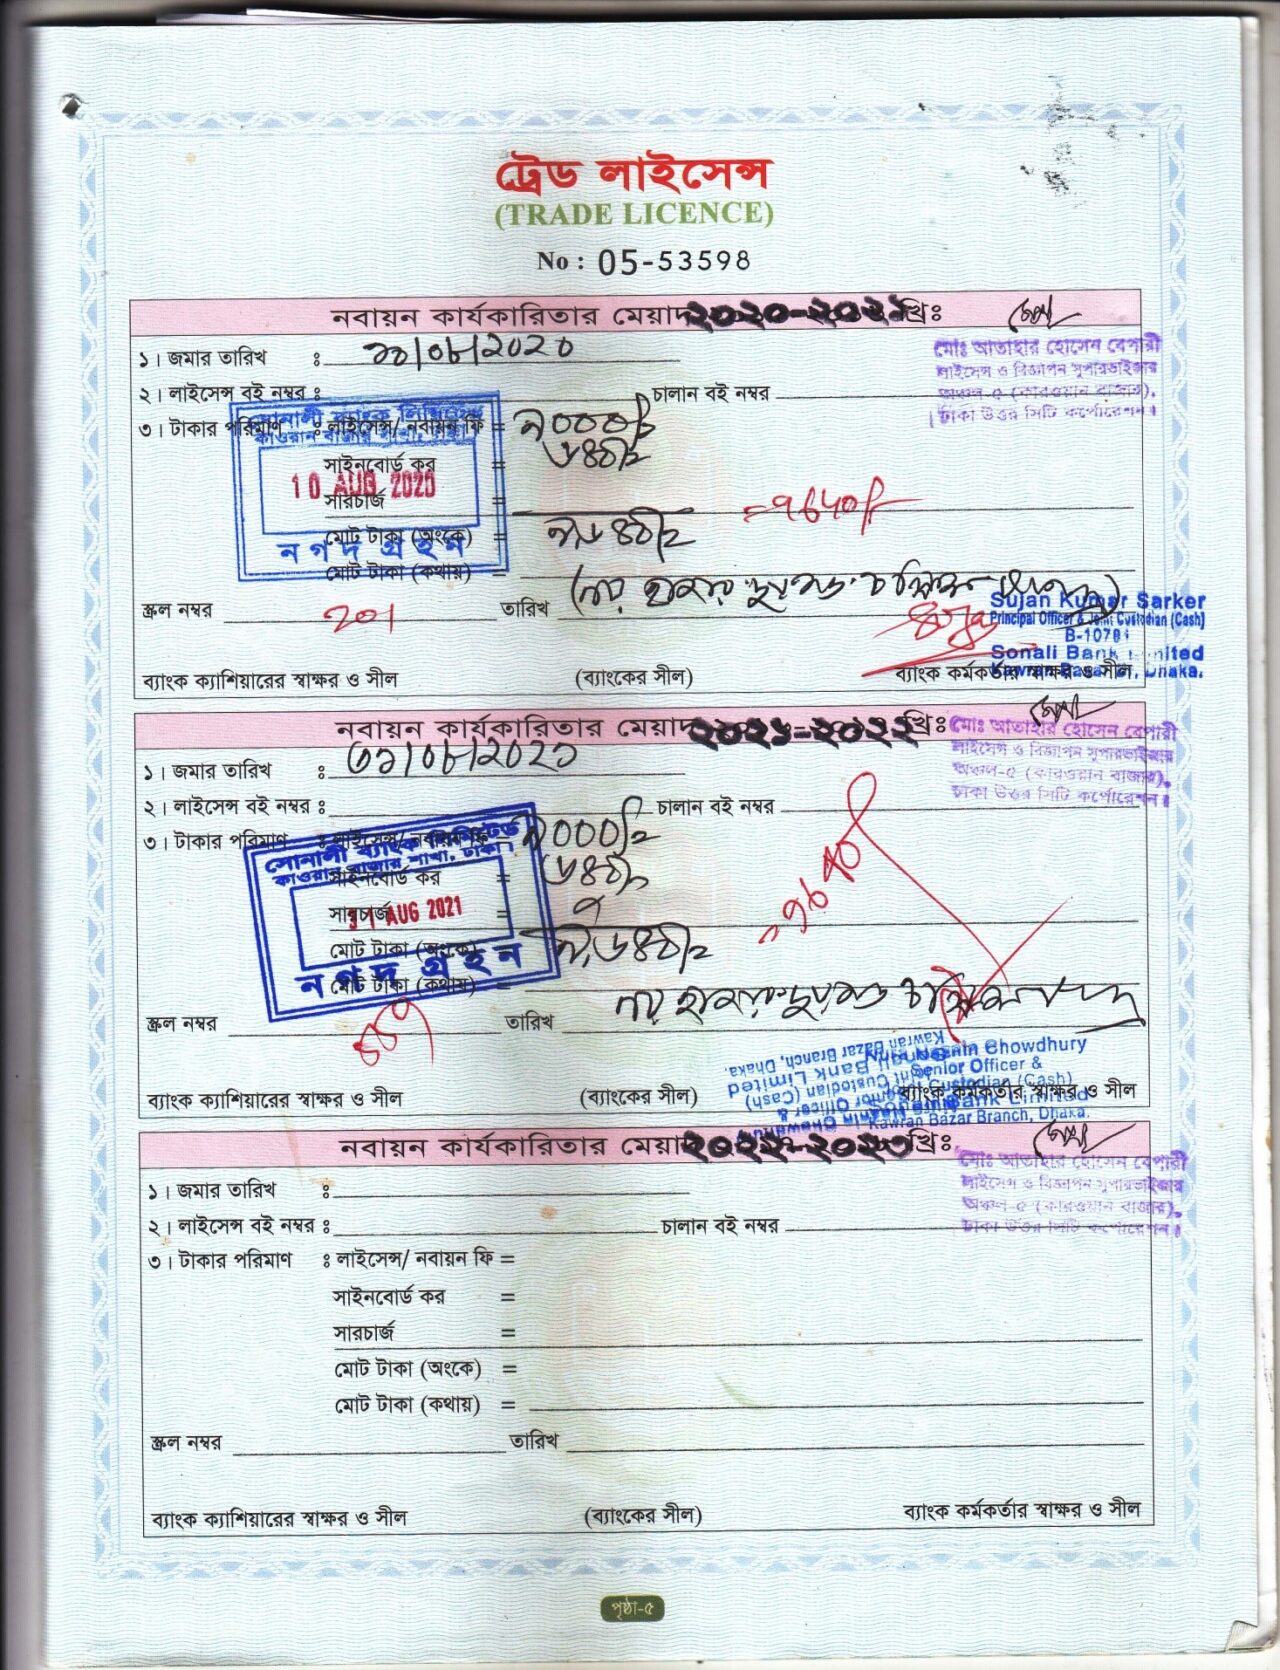 ট্রেড লাইসেন্স
(TRADE LICENCE)
No : 05-53598
নবায়ন কার্যকারিতার মেয়াদ ২০২০-২০২১ খ্রিঃ
মোঃ আতাহার হোসেন বেপারী
লাইসেন্স ও বিজ্ঞাপন সুপারভাইজার
অঞ্চল-৫ (কারওয়ান বাজার),
ঢাকা উত্তর সিটি কর্পোরেশন।
১। জমার তারিখ ঃ ১০/০৮/২০২০
২। লাইসেন্স বই নম্বর ঃ চালান বই নম্বর
৩। টাকার পরিমাণ ঃ লাইসেন্স/ নবায়ন ফি = ৯০০০/-
সোনালী ব্যাংক লিমিটেড
কাওরান বাজার শাখা, ঢাকা।
সাইনবোর্ড কর =
10 AUG 2020
সারচার্জ =
মোট টাকা (অংকে) =
নগদ গ্রহন
মোট টাকা (কথায়) =
স্ক্রল নম্বর 201 তারিখ
Sujan Kumar Sarker
Principal Officer & Joint Custodian (Cash)
Sonali Bank Limited
Kawran Bazar Br, Dhaka.
ব্যাংক ক্যাশিয়ারের স্বাক্ষর ও সীল (ব্যাংকের সীল) ব্যাংক কর্মকর্তার স্বাক্ষর ও সীল
নবায়ন কার্যকারিতার মেয়াদ ২০২১-২০২২ খ্রিঃ
মোঃ আতাহার হোসেন বেপারী
লাইসেন্স ও বিজ্ঞাপন সুপারভাইজার
অঞ্চল-৫ (কারওয়ান বাজার),
ঢাকা উত্তর সিটি কর্পোরেশন।
১। জমার তারিখ ঃ ৩১/০৮/২০২১
২। লাইসেন্স বই নম্বর ঃ চালান বই নম্বর
৩। টাকার পরিমাণ ঃ লাইসেন্স/ নবায়ন ফি = ৯০০০/-
সোনালী ব্যাংক লিমিটেড
কাওরান বাজার শাখা, ঢাকা।
সাইনবোর্ড কর =
সারচার্জ =
31 AUG 2021
মোট টাকা (অংকে) =
নগদ গ্রহন
মোট টাকা (কথায়) =
স্ক্রল নম্বর তারিখ
Chowdhury
Senior Officer &
Custodian (Cash)
Bank Limited
Kawran Bazar Branch, Dhaka.
ব্যাংক ক্যাশিয়ারের স্বাক্ষর ও সীল (ব্যাংকের সীল) ব্যাংক কর্মকর্তার স্বাক্ষর ও সীল
নবায়ন কার্যকারিতার মেয়াদ ২০২২-২০২৩ খ্রিঃ
মোঃ আতাহার হোসেন বেপারী
লাইসেন্স ও বিজ্ঞাপন সুপারভাইজার
অঞ্চল-৫ (কারওয়ান বাজার),
ঢাকা উত্তর সিটি কর্পোরেশন।
১। জমার তারিখ ঃ
২। লাইসেন্স বই নম্বর ঃ চালান বই নম্বর
৩। টাকার পরিমাণ ঃ লাইসেন্স/ নবায়ন ফি =
সাইনবোর্ড কর =
সারচার্জ =
মোট টাকা (অংকে) =
মোট টাকা (কথায়) =
স্ক্রল নম্বর তারিখ
ব্যাংক ক্যাশিয়ারের স্বাক্ষর ও সীল (ব্যাংকের সীল) ব্যাংক কর্মকর্তার স্বাক্ষর ও সীল
পৃষ্ঠা-৫